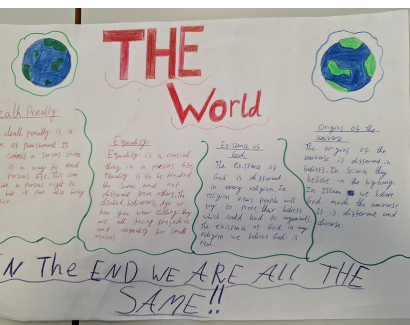 THE
World
Death Penalty
death penalty is a
of punishment it
commits a serious crime
is a way to end
persons life. This can
a persons right to
but it can also bring
Equality
Equality is a crucial
thing in a persons life.
Equality is to be treated
the same and not
different from others. The
disabled, believers, age or
how you wear clothing they
are all facing prejudice
and inequality for small
reasons.
Existence of
God
The Existence of
God is different
in every religion. In
religion news people will
try to prove their beliefs
which could lead to arguments
the existence of God in my
religion we believe God is
real.
Origins of the
universe
The origins of the
universe is different in
beliefs. In Science they
believe in the big bang.
In Islam we believe
God made the universe
It is different and
diverse.
IN The END WE ARE ALL THE
SAME!!